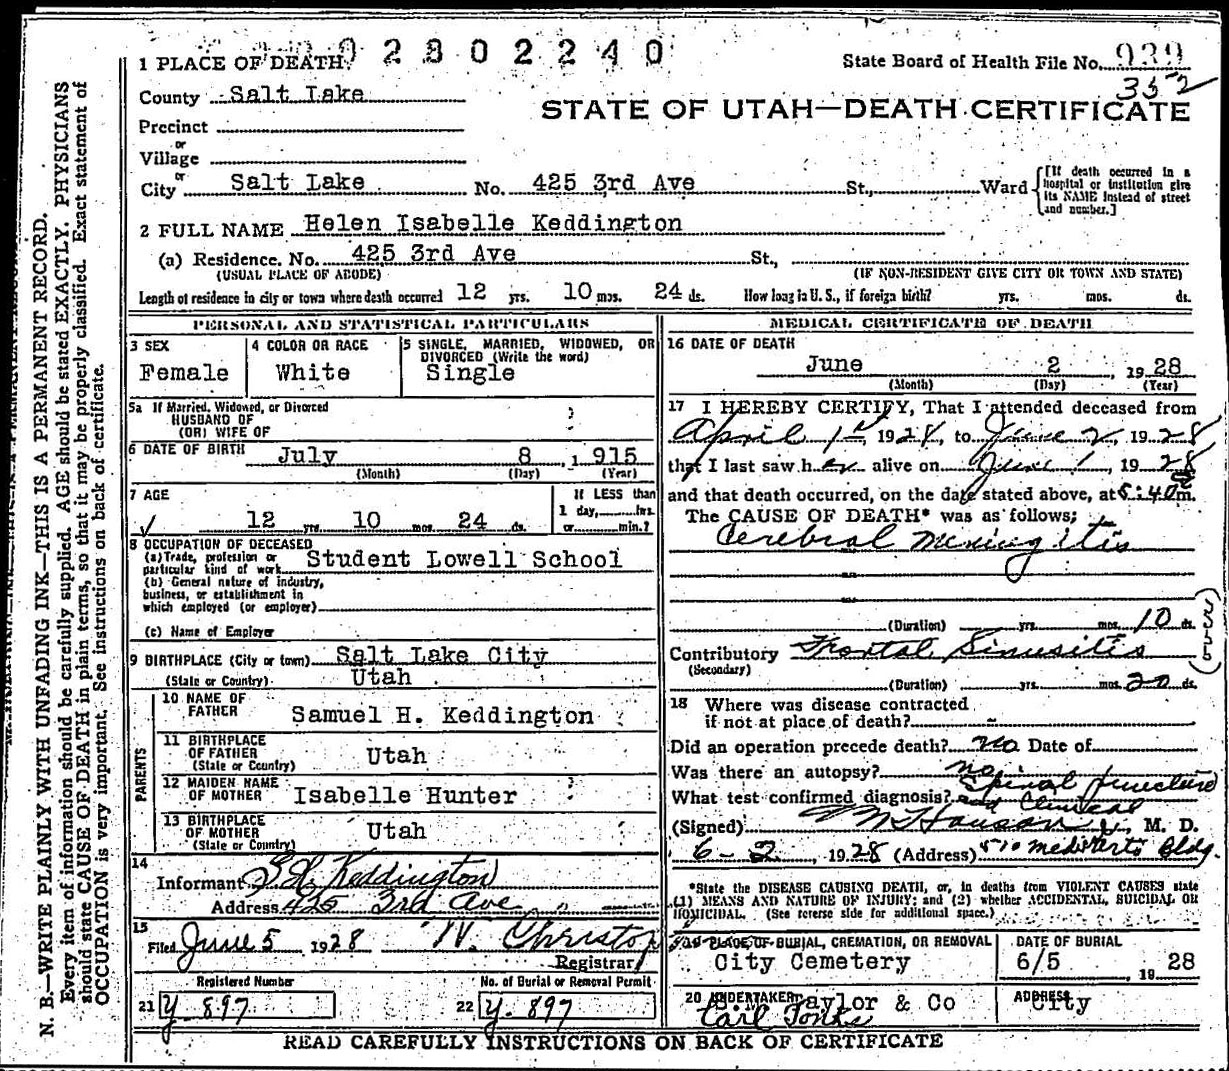 02802240
State Board of Health File No. 939
352
1 PLACE OF DEATH
County Salt Lake
STATE OF UTAH—DEATH CERTIFICATE
Precinct
or
Village
or
City Salt Lake No. 425 3rd Ave St., Ward
[If death occurred in a hospital or institution give its NAME instead of street and number.]
2 FULL NAME Helen Isabelle Keddington
(a) Residence. No. 425 3rd Ave St.,
(USUAL PLACE OF ABODE) (IF NON-RESIDENT GIVE CITY OR TOWN AND STATE)
Length of residence in city or town where death occurred 12 yrs. 10 mos. 24 ds. How long in U. S., if foreign birth? yrs. mos. ds.
PERSONAL AND STATISTICAL PARTICULARS
3 SEX
Female
4 COLOR OR RACE
White
5 SINGLE, MARRIED, WIDOWED, OR
DIVORCED (Write the word)
Single
5a If Married, Widowed, or Divorced
HUSBAND OF
(OR) WIFE OF
6 DATE OF BIRTH July 8, 1915
(Month) (Day) (Year)
7 AGE
12 yrs. 10 mos. 24 ds.
If LESS than
1 day, hrs.
or min.?
8 OCCUPATION OF DECEASED
(a) Trade, profession or
particular kind of work Student Lowell School
(b) General nature of industry,
business, or establishment in
which employed (or employer)
(c) Name of Employer
9 BIRTHPLACE (City or town) Salt Lake City
(State or Country) Utah
PARENTS
10 NAME OF
FATHER Samuel H. Keddington
11 BIRTHPLACE
OF FATHER Utah
(State or Country)
12 MAIDEN NAME
OF MOTHER Isabelle Hunter
13 BIRTHPLACE
OF MOTHER Utah
(State or Country)
14
Informant S H Keddington
Address 425 3rd Ave
15
Filed June 5 1928 W. Christop
Registrar
Registered Number No. of Burial or Removal Permit
21 Y-897 22 Y-897
MEDICAL CERTIFICATE OF DEATH
16 DATE OF DEATH
June 2, 1928
(Month) (Day) (Year)
17 I HEREBY CERTIFY, That I attended deceased from
April 1st, 1928, to June 2, 1928
that I last saw her alive on June 1, 1928
and that death occurred, on the date stated above, at 5:40 m.
The CAUSE OF DEATH* was as follows:
Cerebral Meningitis
(Duration) yrs. mos. 10 ds.
(over)
Contributory Frontal Sinusitis
(Secondary)
(Duration) yrs. mos. 20 ds.
18 Where was disease contracted
if not at place of death?
Did an operation precede death? no Date of
Was there an autopsy? no
What test confirmed diagnosis? Spinal puncture and Clinical
(Signed) M. D.
6-2, 1928 (Address) 510 Med Arts Bldg.
*State the DISEASE CAUSING DEATH, or, in deaths from VIOLENT CAUSES state
(1) MEANS AND NATURE OF INJURY; and (2) whether ACCIDENTAL, SUICIDAL OR
HOMICIDAL. (See reverse side for additional space.)
19 PLACE OF BURIAL, CREMATION, OR REMOVAL
City Cemetery
DATE OF BURIAL
6/5, 1928
20 UNDERTAKER Taylor & Co
Carl Tonks
ADDRESS City
READ CAREFULLY INSTRUCTIONS ON BACK OF CERTIFICATE
N. B.—WRITE PLAINLY WITH UNFADING INK—THIS IS A PERMANENT RECORD.
Every item of information should be carefully supplied. AGE should be stated EXACTLY. PHYSICIANS
should state CAUSE OF DEATH in plain terms, so that it may be properly classified. Exact statement of
OCCUPATION is very important. See instructions on back of certificate.